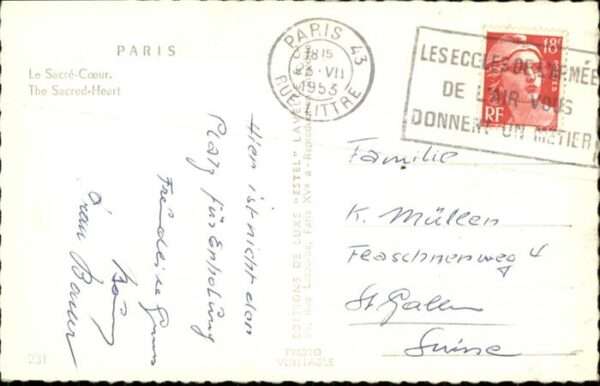 PARIS
Le Sacré-Cœur.
The Sacred-Heart
PARIS 43
18 15
VII
1953
RUE LITTRÉ
LES ECOLES DE L'ARMÉE
DE L'AIR VOUS
DONNENT UN METIER
18F
POSTES
RF
Hier ist nicht den
Platz für Erholung
Freundliche Grüsse
EDITIONS DE LUXE "ESTEL"
PHOTO
VÉRITABLE
Familie
K. Müller
Flaschnerweg 4
St. Gallen
Suisse
231